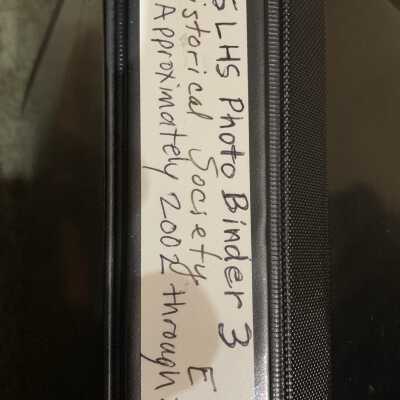 LHS Photo Binder 3
istorical Society E
Approximately 2002 through